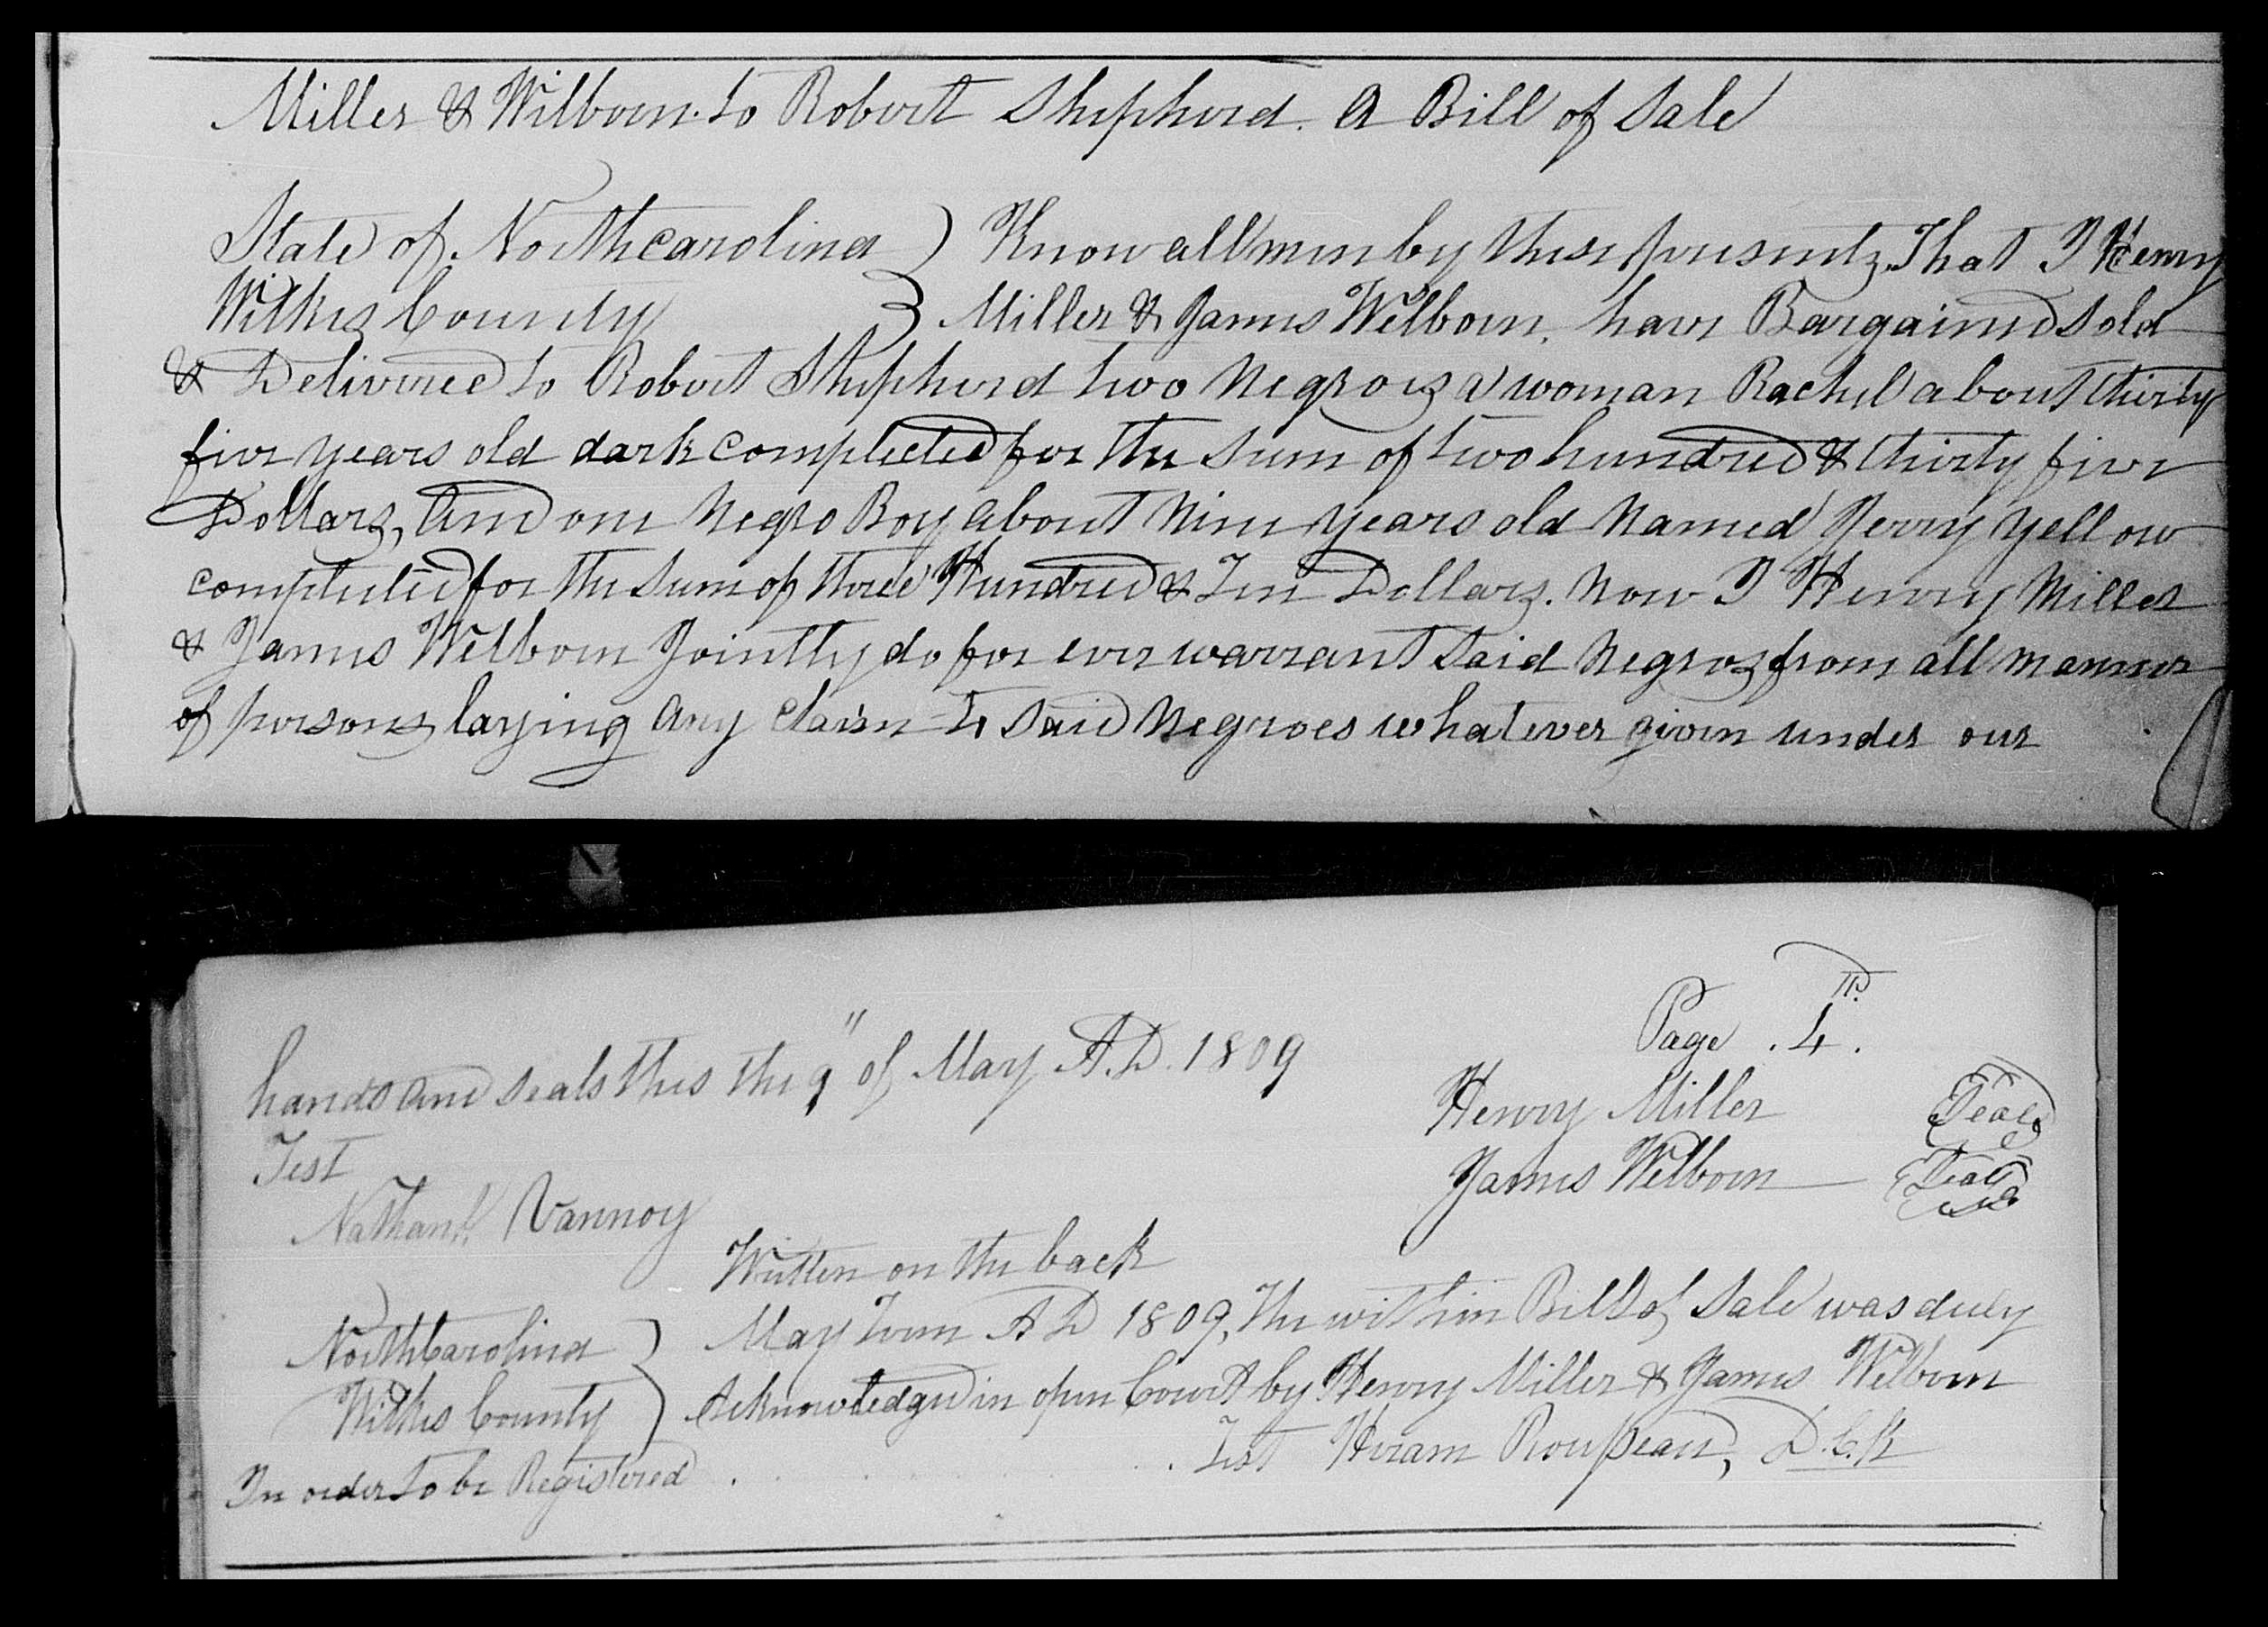 Miller & Wilborn to Robert Shepherd. A Bill of Sale
State of Northcarolina ) Know all men by these presents, That I Henry
Wilkes County } Miller & James Welborn. have Bargained sold
& Delivered to Robert Shepherd two Negroes a woman Rachel about thirty
five years old dark complected for the sum of two hundred & thirty five
Dollars, And one Negro Boy about Nine years old Named Jerry yellow
complected for the sum of three Hundred & Ten Dollars. Now I Henry Miller
& James Welborn Jointly do for ever warrant said Negros from all manner
of persons laying any claim to said Negroes whatever given under our
Page . 4th.
hands and seals this the 9" of May A.D. 1809
Henry Miller Seal
Test
James Welborn Seal
Nathanl. Vannoy
Written on the back
NorthCarolina ) May Term AD 1809, The within Bill of Sale was duly
Wilkes County ) Acknowledged in open Court by Henry Miller & James Welborn
In order to be Registered . . Test Hiram Rousseau, D.C.K